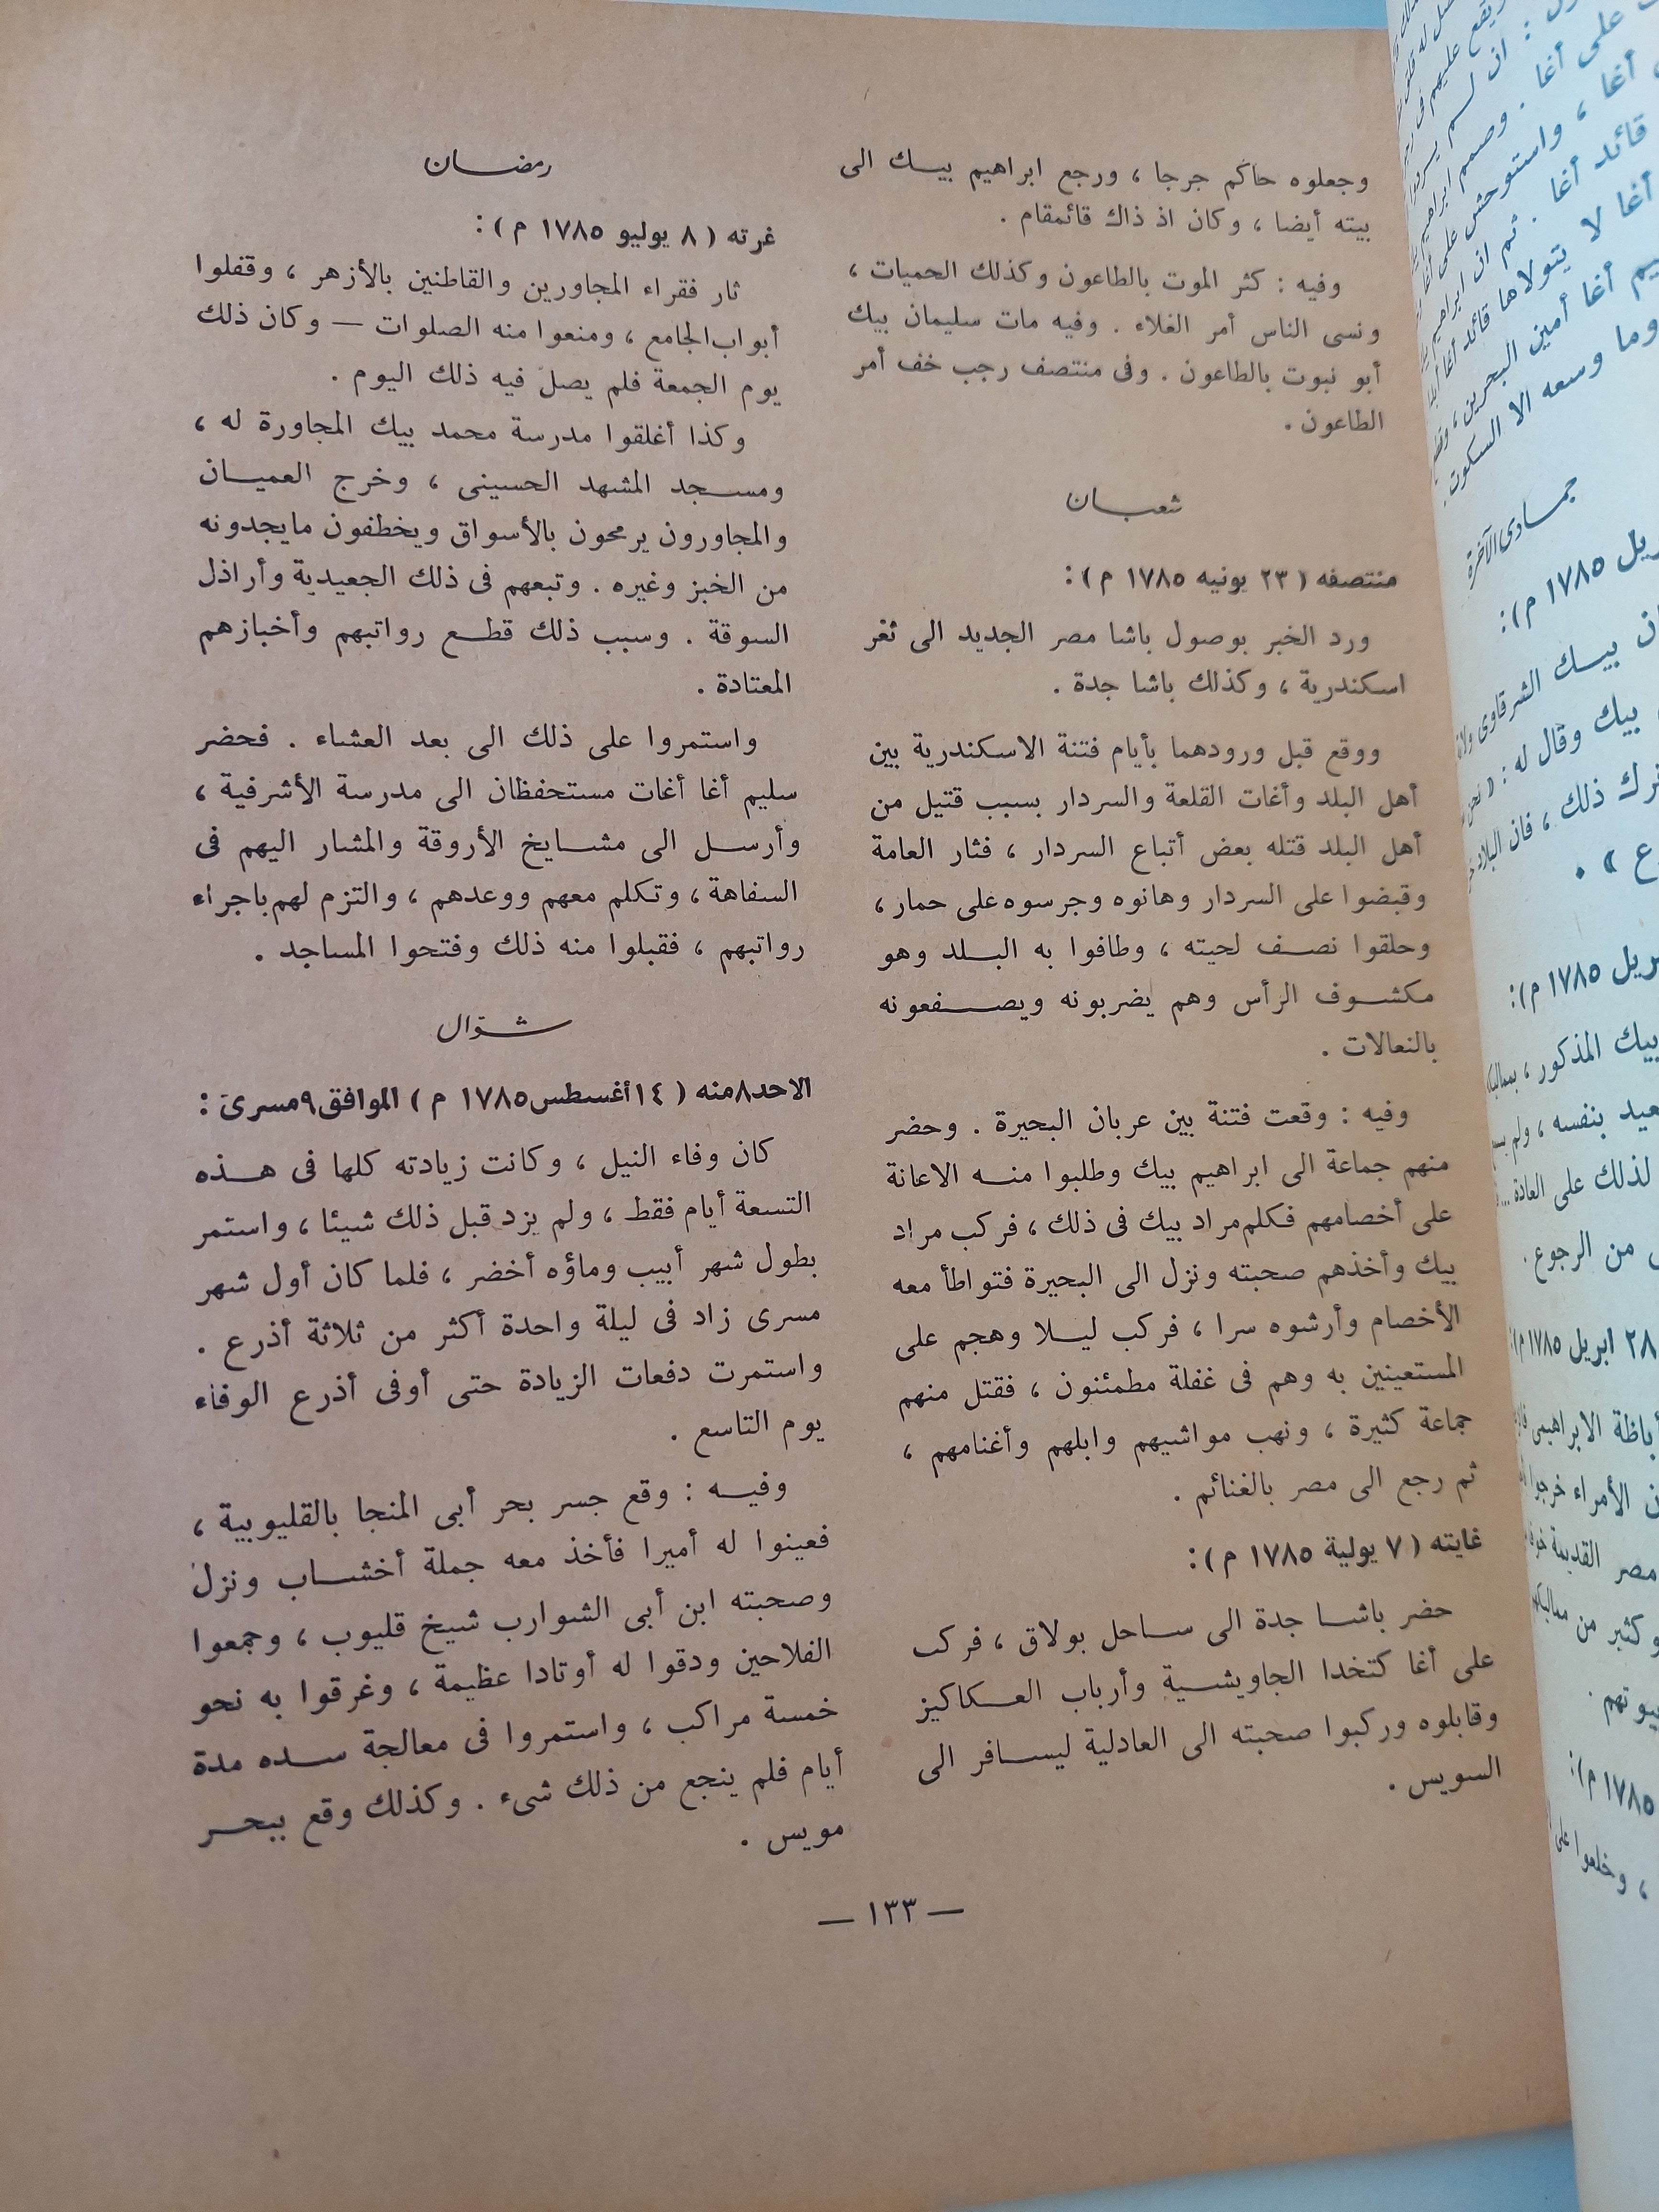 وجعلوه حاكم جرجا ، ورجع ابراهيم بيــك الى
بيته أيضا ، وكان اذ ذاك قائمقام .
وفيه : كثر الموت بالطاعون وكذلك الحميات ،
ونسى الناس أمر الغلاء . وفيه مات سليمان بيك
أبو نبوت بالطاعون . وفى منتصف رجب خف أمر
الطاعون .
شعبــان
منتصفه ( ٢٣ يونيه ١٧٨٥ م ) :
ورد الخبر بوصول باشا مصر الجديد الى ثغر
اسكندرية ، وكذلك باشا جدة .
ووقع قبل ورودهما بأيام فتنة الاسكندرية بين
أهل البلد وأغات القلعة والسردار بسبب قتيل من
أهل البلد قتله بعض أتباع السردار ، فثار العامة
وقبضوا على السردار وهانوه وجرسوه على حمار ،
وحلقوا نصــف لحيته ، وطافوا به البــلد وهو
مكشــوف الرأس وهم يضربونه ويصــفعونه
بالنعالات .
وفيه : وقعت فتنة بين عربان البحيرة . وحضر
منهم جماعة الى ابراهيم بيك وطلبوا منــه الاعانة
على أخصامهم فكلم مراد بيك فى ذلك ، فركب مراد
بيك وأخذهم صحبته ونزل الى البحيرة فتواطأ معه
الأخصام وأرشوه سرا ، فركب ليــلا وهجم على
المستعينين به وهم فى غفلة مطمئنون ، فقتل منهم
جماعة كثيرة ، ونهب مواشيهم وابلهم وأغنامهم ،
ثم رجع الى مصر بالغنائم .
غايته ( ٧ يولية ١٧٨٥ م ) :
حضر باشــا جدة الى ســاحل بولاق ، فركب
على أغا كتخدا الجاويشــية وأرباب العــكاكيز
وقابلوه وركبوا صحبته الى العادلية ليســافر الى
السويس .
رمضــان
غرته ( ٨ يوليو ١٧٨٥ م ) :
ثار فقراء المجاورين والقاطنين بالأزهر ، وقفلوا
أبواب الجامع ، ومنعوا منه الصلوات — وكان ذلك
يوم الجمعة فلم يصل فيه ذلك اليوم .
وكذا أغلقوا مدرسة محمد بيك المجاورة له ،
ومســجد المشهد الحسينى ، وخرج العميــان
والمجاورون يرمحون بالأسواق ويخطفون مايجدونه
من الخبز وغيره . وتبعهم فى ذلك الجعيدية وأراذل
السوقة . وسبب ذلك قطــع رواتبهم وأخبازهم
المعتادة .
واستمروا على ذلك الى بعد العشاء . فحضر
سليم أغا أغات مستحفظان الى مدرسة الأشرفية ،
وأرســل الى مشــايخ الأروقة والمشار اليهم فى
السفاهة ، وتكلم معهم ووعدهم ، والتزم لهم باجراء
رواتبهم ، فقبلوا منه ذلك وفتحوا المساجد .
شــوّال
الاحد ٨ منه ( ١٤ أغسطس ١٧٨٥ م ) الموافق ٩ مسرى :
كان وفاء النيل ، وكانت زيادته كلها فى هــذه
التسعة أيام فقط ، ولم يزد قبل ذلك شيئا ، واستمر
بطول شهر أبيب وماؤه أخضر ، فلما كان أول شهر
مسرى زاد فى ليلة واحدة أكثر من ثلاثة أذرع .
واستمرت دفعات الزيادة حتى أوفى أذرع الوفاء
يوم التاسع .
وفيــه : وقع جسر بحر أبى المنجا بالقليوبية ،
فعينوا له أميرا فأخذ معه جملة أخشــاب ونزل
وصحبته ابن أبى الشوارب شيخ قليوب ، وجمعوا
الفلاحين ودقوا له أوتادا عظيمة ، وغرقوا به نحو
خمسة مراكب ، واستمروا فى معالجة ســده مدة
أيام فلم ينجع من ذلك شىء . وكذلك وقع ببحــر
مويس .
— ١٣٣ —
على أغا . وصمم ابراهيم
أغا ، واستوحش على أغا
قائد أغا . ثم ان ابراهيم
أغا لا يتولاها قائد أغا
أغا أمين البحرين ،
وما وسعه الا السكوت .
جمــادى الآخرة
١٧٨٥ م ) :
بيــك الشرقاوى
بيك وقال له : «
ذلك ، فان البلاد
١٧٨٥ م ) :
بيك المذكور ،
بنفسه ، ولم
لذلك على العادة ...
من الرجوع .
٢٨ ابريل ١٧٨٥ م ) :
أباظة الابراهيمى
الأمراء خرجوا
مصر القديمة
وكثير من
١٧٨٥ م ) :
، وخلعوا على